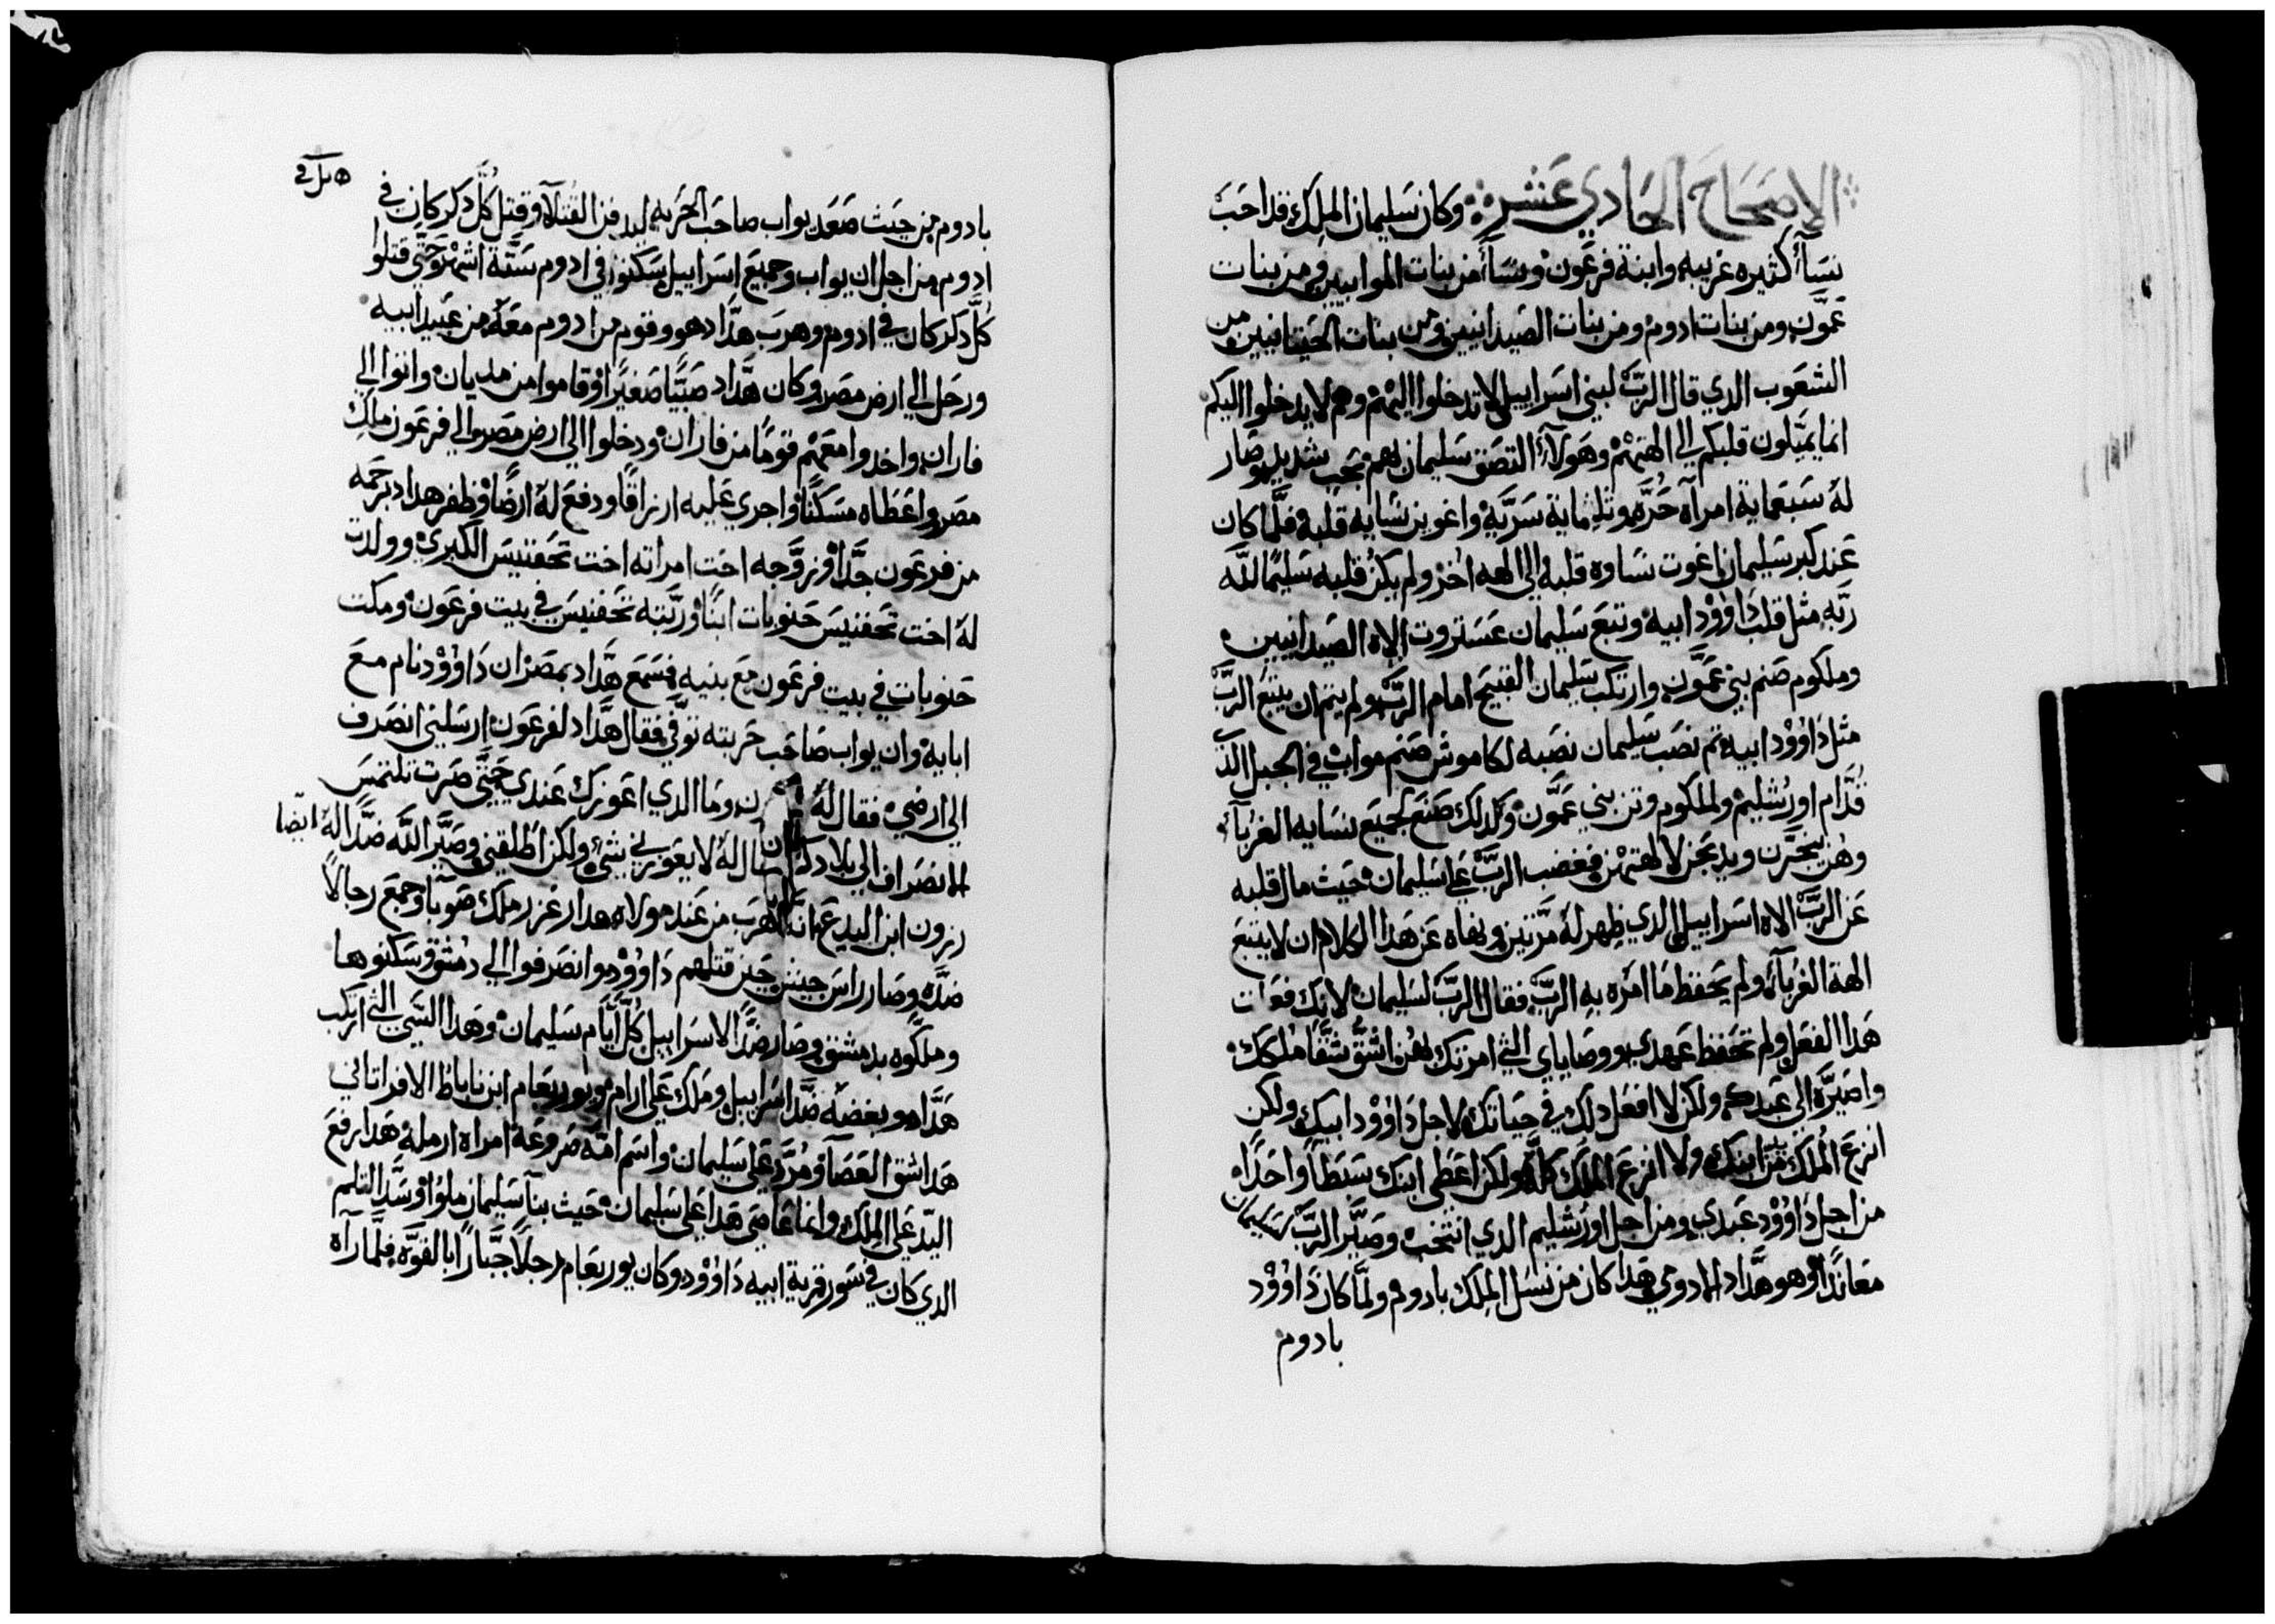 الاصحاح الحادي عشر وكان سليمان الملك قد احب
نسآء كثيره غريبه وابنة فرعون ونسآء من بنات الموابيين ومن بنات
عمّون ومن بنات ادوم ومن بنات الصيدانيين ومن بنات الحيتانيين من
الشعوب الدي قال الربّ لبني اسراييل لا تدخلوا اليهم وهم لا يدخلوا اليكم
انما يميّلون قلبكم الي الهتهم وهولآء التصق سليمان بهم بحب شديد وصار
له سبعماية امرآة حُرَّه وتلثماية سَرّية واغوين نسايه قلبه فلمّا كان
عند كبر سليمان اغوت نساوه قلبه الي الهه اخر ولم يكن قلبه سليمًا للّه
ربّه مثل قلب دَاوُوْد ابيه وتبع سليمان عستروت الاه الصيدانيين
وملكوم صنم بني عمّون وارتكب سليمان القبيح امام الربّ ولم يتم ان يتبع الربّ
مثل دَاوُوْد ابيه تم نصب سليمان نصبه لكاموش صنم مواب في الجبل الذي
قُدّام اورُشليم ولملكوم وتن بني عمّون وكدلك صنع لجميع نسايه الغربآء
وهن يبخّرن ويدبحن لالهتهن فغضب الربّ علي سليمان حيث مال قلبه
عن الربّ الاه اسراييل الدي ظهر له مرّتين ونهاه عن هدا الكلام ان لا يتبع
الهة الغربآء ولم يحفظ ما امره به الربّ فقال الربّ لسليمان لانك فعلت
هدا الفعل ولم تحفظ عهدي ووصاياي التي امرتك بهن اشقّ شقًّا ملكك
واصيّره الي عبدك ولكن لا افعل دلك في حياتك لاجل دَاوُوْد ابيك ولكن
انزع المُلك من يد ابنك ولا انزع الملك كلّه ولكن اعطي ابنك سبطاً واحدًا
من اجل دَاوُوْد عبدي ومن اجل اورُشليم الدي انتخبت وصيّر الربّ لسليمان
معاندًا وهو هدّاد الادومي هدا كان من نسل الملك بادوم ولمّا كان دَاوُوْد
بادوم
بادوم من حيث صعد يواب صاحب الحربه ليدفن القتلآء وقتل كُلّ دكر كان في
ادوم من اجل ان يواب وجميع اسراييل سكنوا في ادوم ستّة اشهر حتّي قتلوا
كُلّ دكر كان في ادوم وهرب هدّاد هو وقوم من ادوم معه من عبيد ابيه
ورحل الي ارض مصر وكان هدّاد صبيًّا صغيرًا وقاموا من مديان واتوا الي
فاران واخدوا معهم قومًا من فاران ودخلوا الي ارض مصر والي فرعون ملك
مصر واعطاه مسكنًا واجري عليه ارزاقًا ودفع له ارضًا وظفر هداد برحمه
من فرعون جدًّا وزوّجه اخت امراته اخت تحفنيس الكبري وولدت
له اخت تحفنيس جنوبات ابنًا وربّته تحفنيس في بيت فرعون ومكت
جنوبات في بيت فرعون مع بنيه فسمع هدّاد بمصر ان دَاوُوْد نام مع
ابايه وان يواب صاحب حربته توفّي فقال هدّاد لفرعون ارسلني انصرف
الي ارضي فقال له وما الدي اعوزك عندي حتّي صرت تلتمس
الانصراف الي بلادك قال له لا يعوزني شي ولكن اطلقني وصيّر اللّه ضدًّا له ايضا
رزون ابن اليدع انه هرب من عند مولاه هدار عزر ملك صوبآ وجمع رجالاً
ضدّه وصار راس جيش حين قتلهم دَاوُوْد وانصرفوا الي دمشق وسكنوها
وملّكوه بدمشق وصار ضدًّا لاسراييل كُلّ ايّام سليمان وهدا السّي التي ارتكب
هدّاد وبغضه ضدّ اسراييل وملك علي ارام ويوربعام ابن ناباط الافراتاني
هدا شق العصآ ومُرّد علي سليمان واسم امّه صروعة امراه ارمله هدا رفع
اليد علي الملك وانما عاصي هدا علي سليمان حيث بنآ سليمان ملوا وسدّ التلم
الدي كان في سور قرية ابيه دَاوُوْد وكان يوربعام رجلاً جبّارًا بالقوّه فلمّا رآه